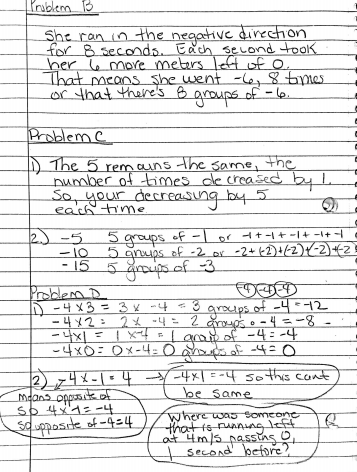 Problem B
She ran in the negative direction
for 8 seconds. Each second took
her 6 more meters left of 0.
That means she went -6, 8 times
or that there's 8 groups of -6.
Problem C
1) The 5 remains the same, the
number of times decreased by 1.
So, your decreasing by 5
each time
2.) -5 5 groups of -1 or -1+-1+-1+-1+-1
-10 5 groups of -2 or -2+(-2)+(-2)+(-2)+(-2
-15 5 groups of -3
Problem D
(-4)(-4)(-4)
1) -4x3 = 3x -4 = 3 groups of -4 = -12
-4x2 = 2x -4 = 2 groups o -4 = -8
-4x1 = 1x-4 = 1 group of -4 = -4
-4x0 = 0x-4 = 0 groups of -4 = 0
2) -4x-1=4 → -4x1=-4 so this cant
be same
means opposite of
so 4x-1=-4
so opposite of -4=4
Where was someone
that is running left
at 4m/s passing 0,
1 second before?